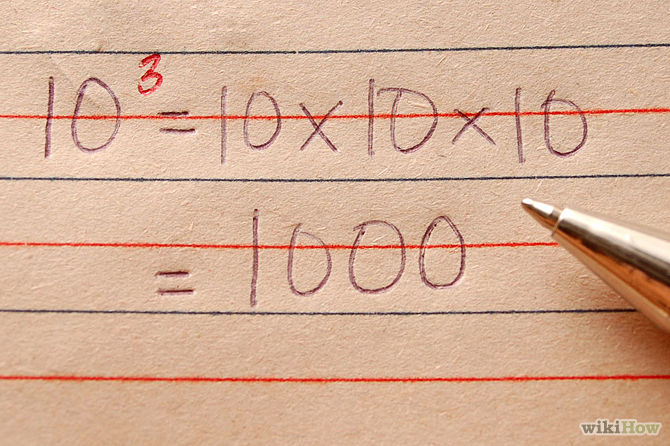 10³ = 10 x 10 x 10
= 1000
wikiHow